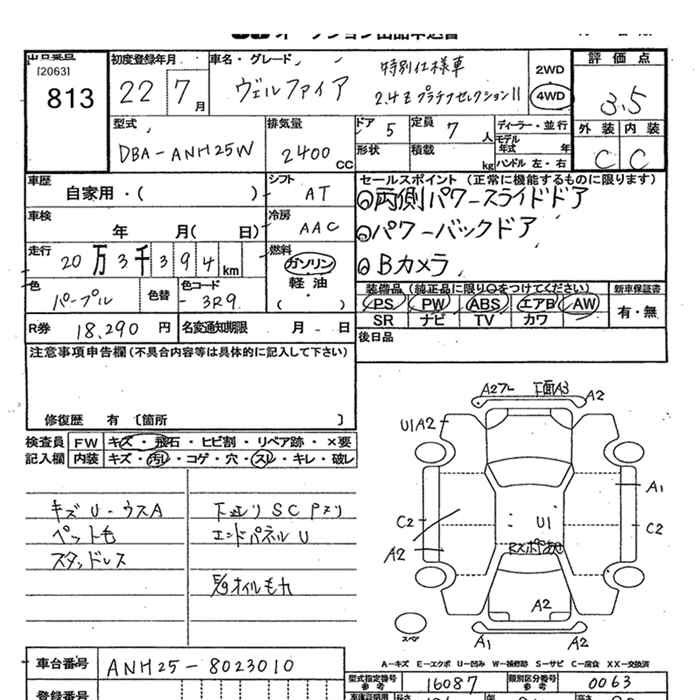 オークション出品申込書
出品番号 初度登録年月 車名・グレード 評価点
[2063]
813 22 7月 ヴェルファイア 特別仕様車 2.4Z プラチナセレクションII 2WD 4WD 3.5
型式 排気量 ドア 5 定員 7人 ディーラー・並行 外装 内装
DBA-ANH25W 2400cc 形状 積載 kg モデル年式 年 ハンドル 左・右 C C
車歴 シフト セールスポイント(正常に機能するものに限ります)
自家用・( ) AT 両側パワースライドドア
車検 冷房 パワーバックドア
年 月( 日) AAC
走行 燃料 Bカメラ
20万3千394km ガソリン
軽油
( )
色 色替 色コード 装備品(純正品に限り○をつけてください) 新車保証書
パープル 3R9 PS PW ABS エアB AW 有・無
SR ナビ TV カワ
R券 18,290円 名変通知期限 月 - 日 後日品
注意事項申告欄(不具合内容等は具体的に記入して下さい)
修復歴 有 〔箇所 〕
検査員 FW キズ・飛石・ヒビ割・リペア跡・×要
記入欄 内装 キズ・汚レ・コゲ・穴・スレ・キレ・破レ
キズU・ウスA 下廻りSCアメリ
ペット毛 エンドパネルU
スタッドレス
E/gオイルモレ
A2フレ 下面A3 A2
U1A2
A1
C2 C2
A2 U1
A2
スペア
A1 A2
A-キズ E-エクボ U-凹み W-補修跡 S-サビ C-腐食 XX-交換済
車台番号 ANH25-8023010
型式指定番号 参考 16087 類別区分番号 参考 0063
登録番号